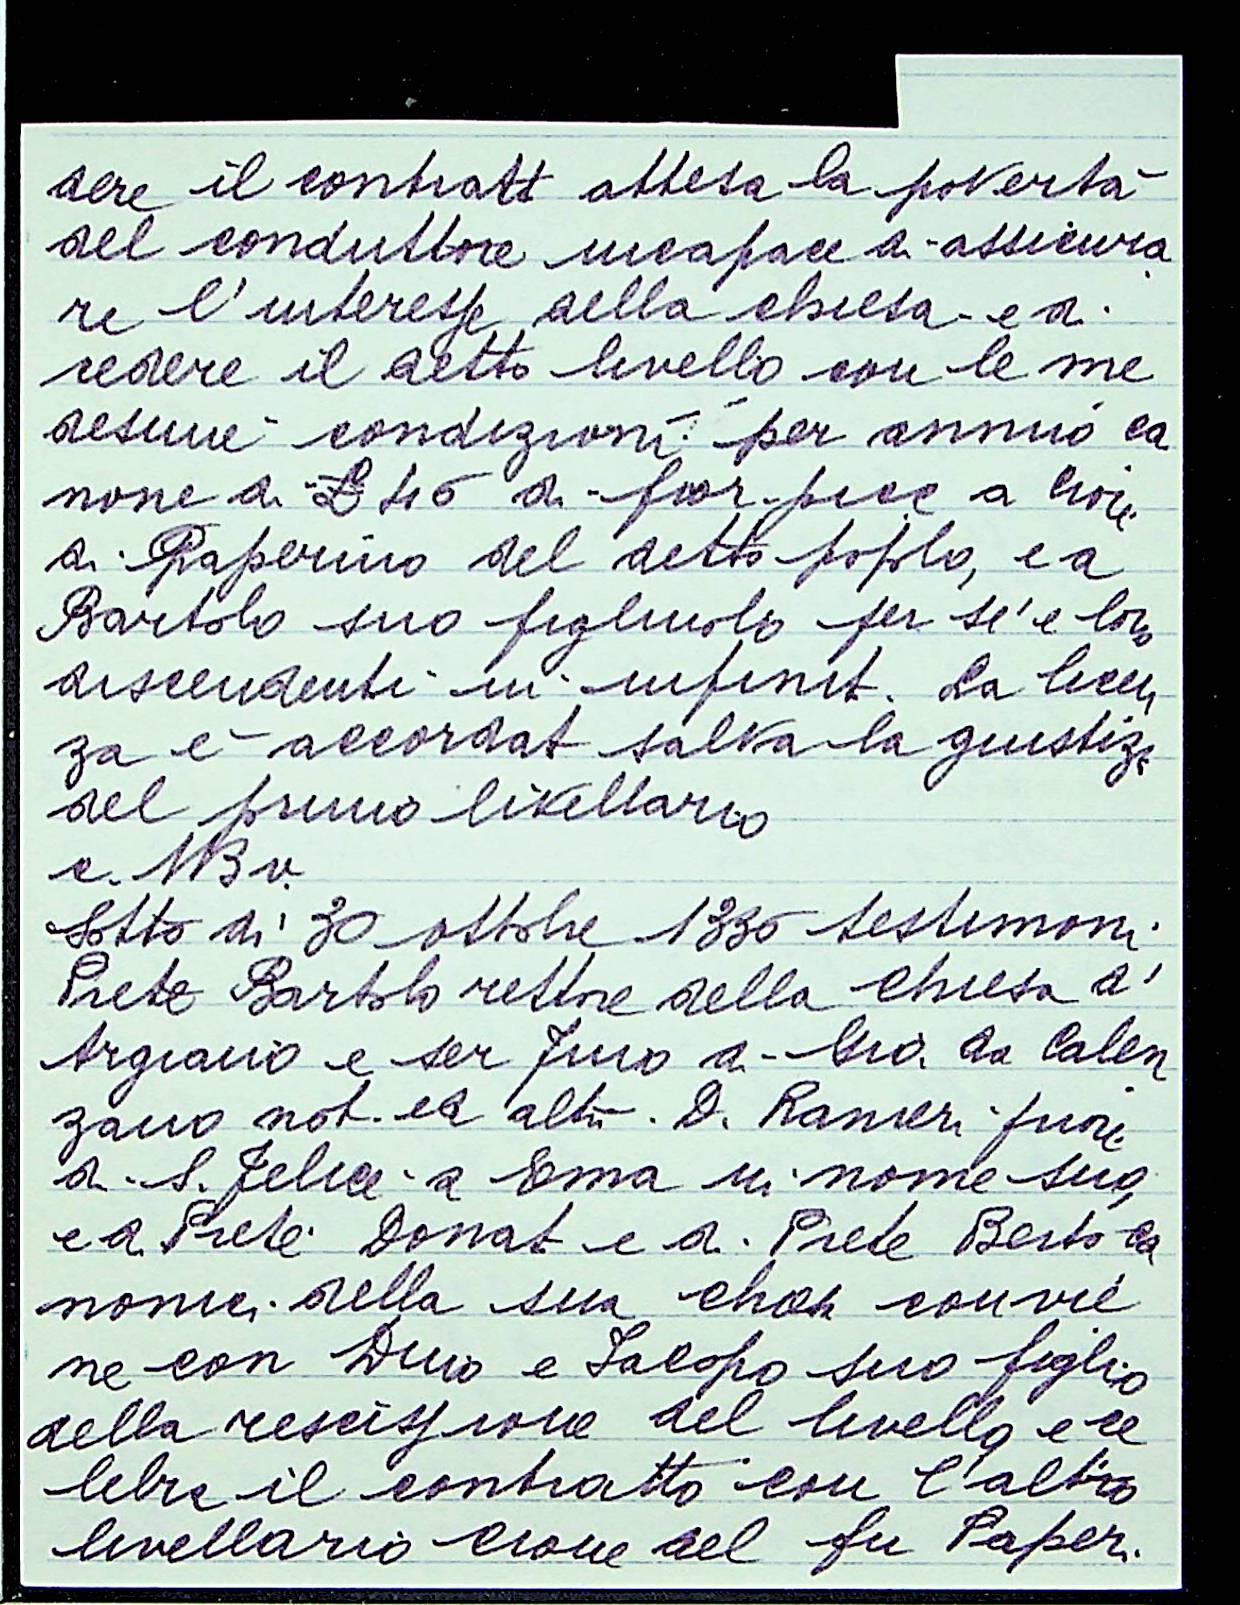 dere il contratt attesa la povertà
del conduttore incapace di assicura
re l'interesse della chiesa e di
cedere il detto livello con le me
desime condizioni per annuo ca
none di £ 46 di fior. picc a Cione
di Paperino del detto popolo, e a
Bartolo suo figliuolo per sé e loro
discendenti in infinit. La licen
za è accordat salva la giustizi
del primo livellario
c. 113 v.
Sotto di 30 ottobre 1336 testimoni
Prete Bartolo rettore della chiesa d'
Argiano e ser Juno di Gio. da Calen
zano not. ed altri. D. Ranieri priore
di S. Felice a Ema in nome suo,
e di Prete Donat e di Prete Berto ca
nonici della sua chiesa convie
ne con Duio e Jacopo suo figlio
della rescissione del livello, e ce
lebra il contratto con l'altro
livellario Cione del fu Paperi